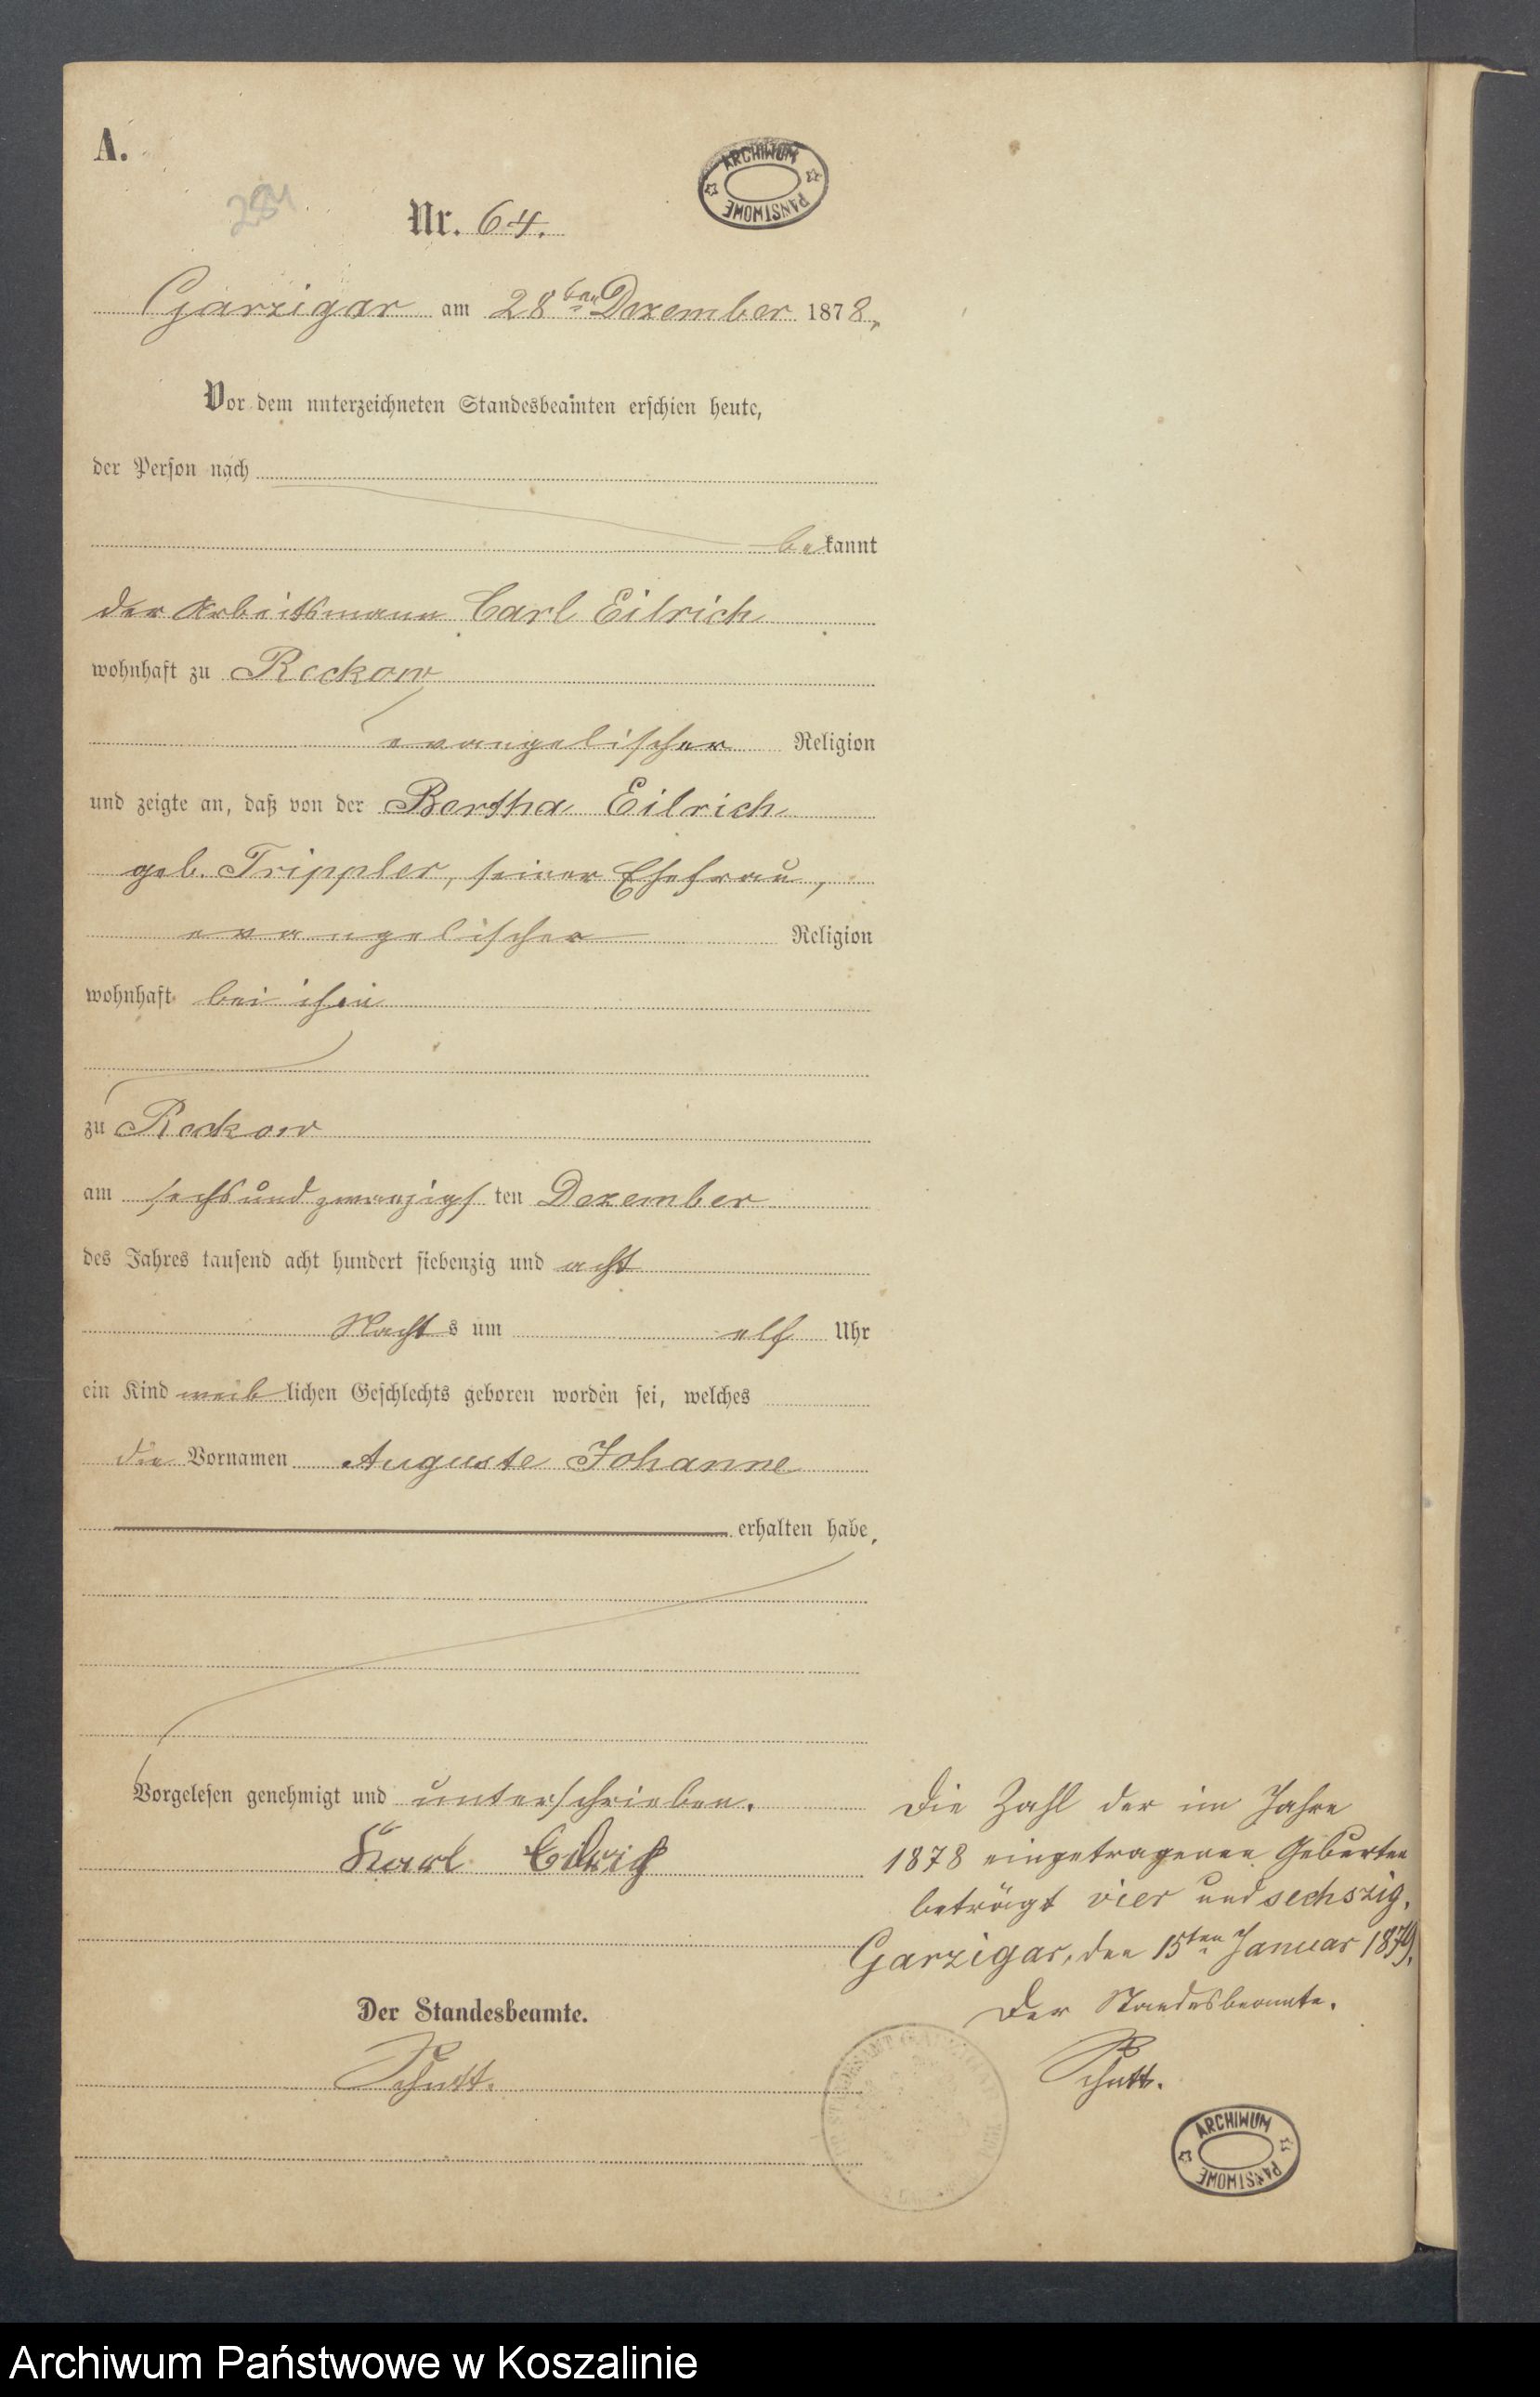 A.
284
Nr. 64.
ARCHIWUM PAŃSTWOWE
Garzigar am 28ten Dezember 1878.
Vor dem unterzeichneten Standesbeamten erschien heute,
der Person nach
bekannt
der Arbeitsmann Carl Eilrich
wohnhaft zu Reckow
evangelischer Religion
und zeigte an, daß von der Bertha Eilrich
geb. Trippler, seiner Ehefrau,
evangelischer Religion
wohnhaft bei ihm
zu Reckow
am sechsundzwanzigsten Dezember
des Jahres tausend acht hundert siebenzig und acht
Nachts um elf Uhr
ein Kind weiblichen Geschlechts geboren worden sei, welches
die Vornamen Auguste Johanne
erhalten habe.
Vorgelesen genehmigt und unterschrieben.
Karl Eilrich
Der Standesbeamte.
Schutt.
Die Zahl der im Jahre
1878 eingetragenen Geburten
beträgt vier und sechszig.
Garzigar, den 15ten Januar 1879.
Der Standesbeamte.
Schutt.
ARCHIWUM PAŃSTWOWE
Archiwum Państwowe w Koszalinie